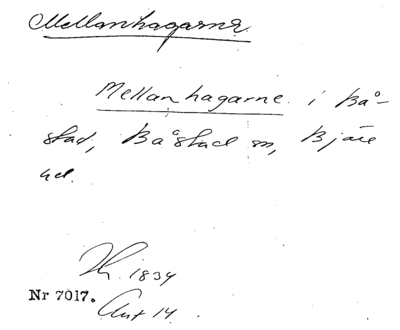 Mellanhagarne.
Mellanhagarne i Bå-
stad, Båstad sn, Bjäre
hd.
1834
Nr 7017.
Art 14